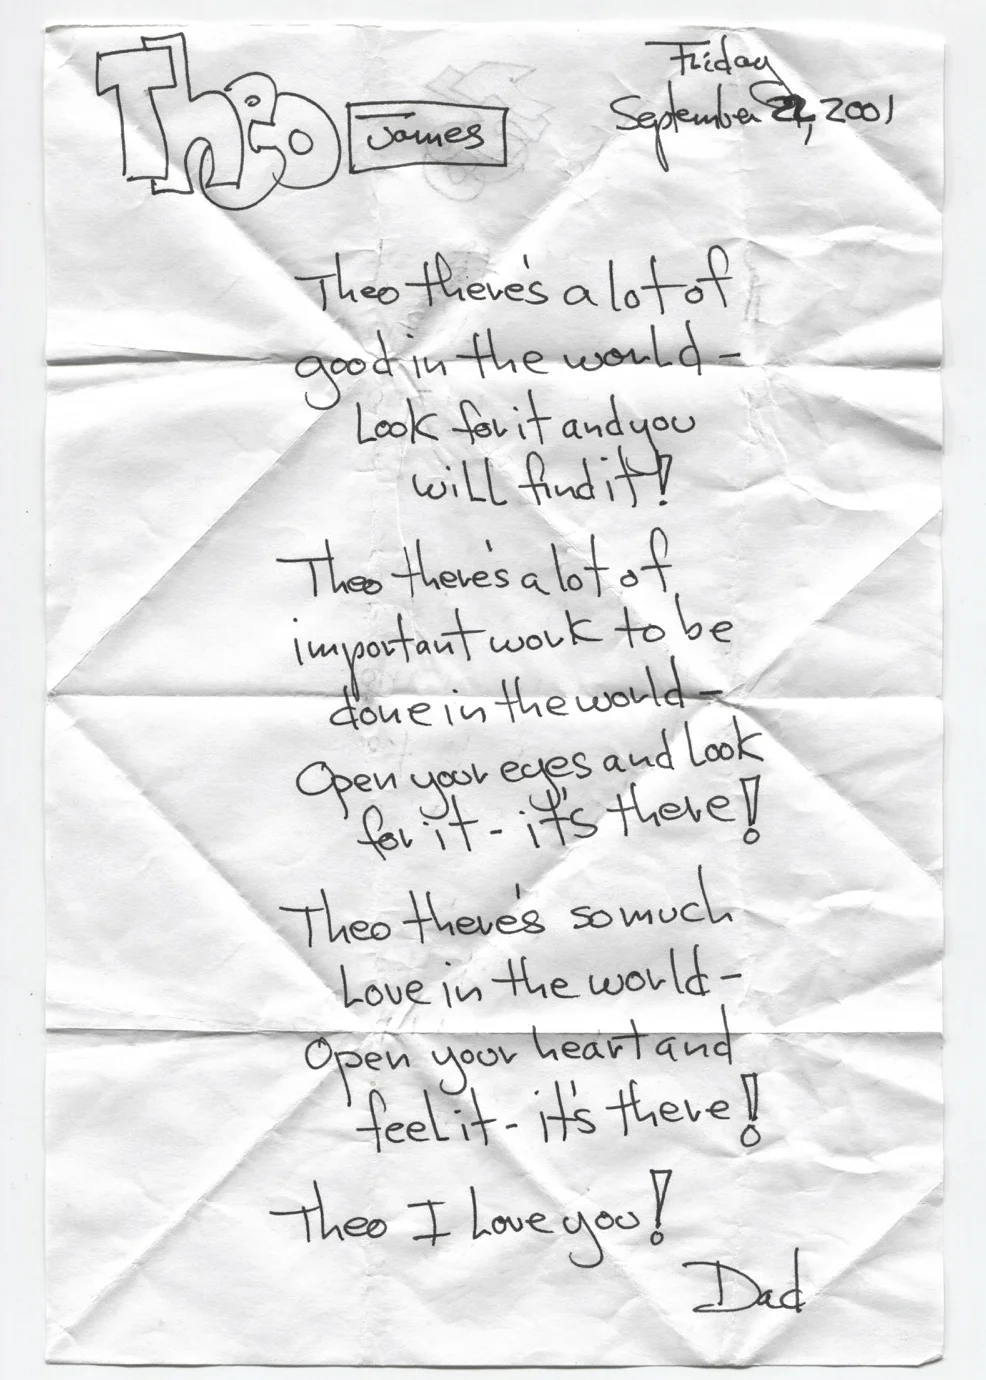 Theo
James
Friday
September 21, 2001
Theo there's a lot of
good in the world -
Look for it and you
will find it!
Theo there's a lot of
important work to be
done in the world -
Open your eyes and Look
for it - it's there!
Theo there's so much
Love in the world -
Open your heart and
feel it - it's there!
Theo I Love you!
Dad